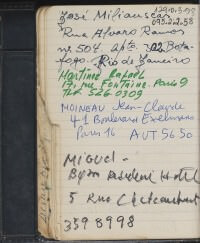 José
Rua Alvaro Ramos
nº 504 apto 302 Bota-
fogo. Rio de Janeiro
Martinez Rafael
rue Fontaine. Paris 9
Tel 526 0309
MOINEAU Jean-Claude
41 Boulevard Exelmans
Paris 16 AUT 56 50
MIGUEL -
Hotel
5 Rue
359 8998